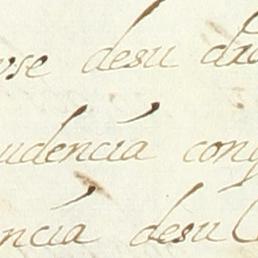 use desu di
udencia con
ncia desu C